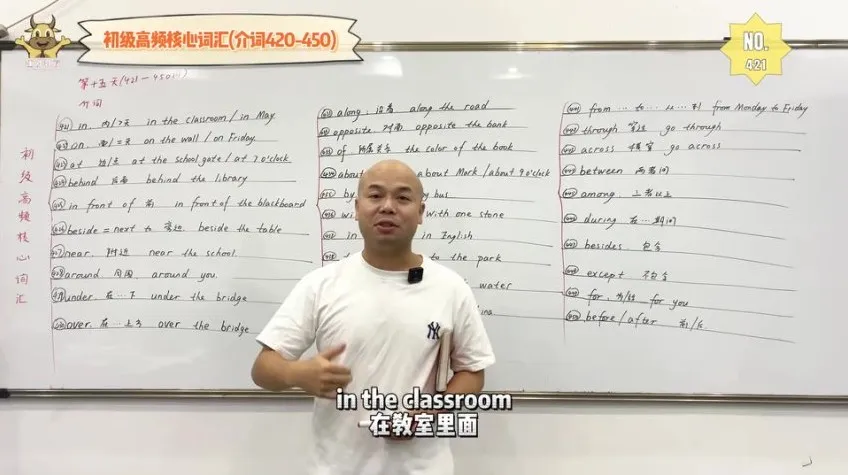 初级高频核心词汇(介词420-450)
NO.
421
第十五天(421-450)
介词
初级高频核心词汇
in. 内/天 in the classroom / in May
on. 面/天 on the wall / on Friday
at at the school gate / at 7 o'clock
behind 后面 behind the library
in front of 前 in front of the blackboard
beside = next to 旁边 beside the table
near. 附近 near the school
around 周围 around you
under. 在…下 under the bridge
over. 在…上方 over the bridge
along. 沿着 along the road
opposite 对面 opposite the bank
of 所属关系 the color of the book
about about Mark / about 9 o'clock
by bus
with one stone
in in English
to the park
water
from … to … 从…到 from Monday to Friday
through 穿过 go through
across 横穿 go across
between 两者间
among. 三者以上
during 在…期间
besides 包含
except 不包含
for. 为/给 for you
before / after 前/后
NY
in the classroom
在教室里面